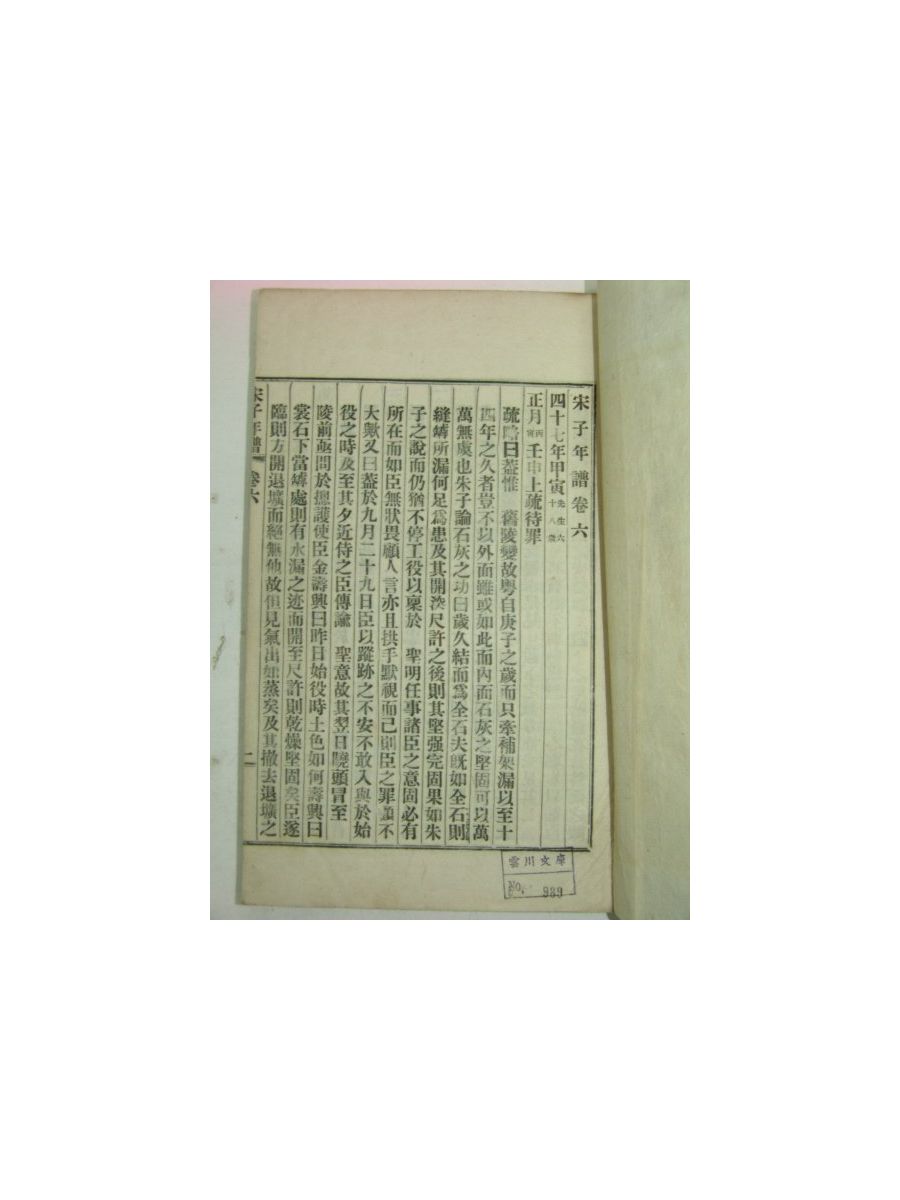 宋子年譜卷六
四十七年甲寅先生六十八歲
正月丙寅壬申上疏待罪
疏略曰蓋惟 舊陵變故粤自庚子之歲而只牽補架漏以至十
四年之久者豈不以外面雖或如此而內面石灰之堅固可以萬
萬無虞也朱子論石灰之功曰歲久結而爲全石夫旣如全石則
縫罅所漏何足爲患及其開深尺許之後則其堅强完固果如朱
子之說而仍猶不停工役以稟於 聖明任事諸臣之意固必有
所在而如臣無狀畏顧人言亦且拱手默視而已則臣之罪顧不
大歟又曰蓋於九月二十九日臣以蹤跡之不安不敢入與於始
役之時及至其夕近侍之臣傳諭 聖意故其翌日曉頭冒至
陵前亟問於摠護使臣金壽興曰昨日始役時土色如何壽興曰
裳石下當罅處則有水漏之迹而開至尺許則乾燥堅固矣臣遂
臨則方開退壙而絕無他故俱見氣出如蒸矣及其撤去退壙之
宋子年譜 卷六
一
雲川文庫
No. 989